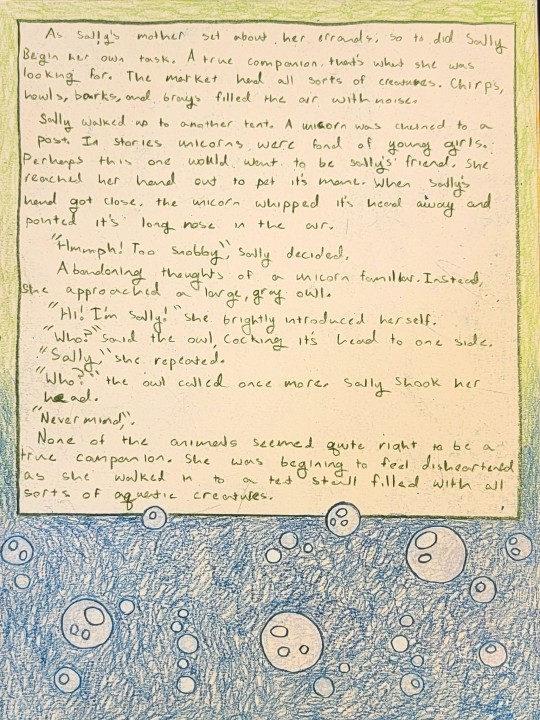 As Sally's mother set about her errands, so to did Sally
Begin her own task. A true companion that's what she was
looking for. The market had all sorts of creatures. Chirps,
howls, barks, and brays filled the air with noise.
Sally walked up to another tent. A unicorn was chained to a
post. In stories unicorns were fond of young girls.
Perhaps this one would want to be sally's friend. She
reached her hand out to pet it's mane. When Sally's
hand got close, the unicorn whipped it's head away and
pointed it's long nose in the air.
"Hmmph! Too snobby", Sally decided.
Abandoning thoughts of a unicorn familiar. Instead,
she approached a large, gray owl.
"Hi! I'm Sally!" she brightly introduced herself.
"Who?" said the owl, cocking it's head to one side.
"Sally," she repeated.
"Who?" the owl called once more. Sally shook her
head.
"Nevermind".
None of the animals seemed quite right to be a
true companion. She was begining to feel disheartened
as she walked in to a tent stall filled with all
sorts of aquatic creatures.